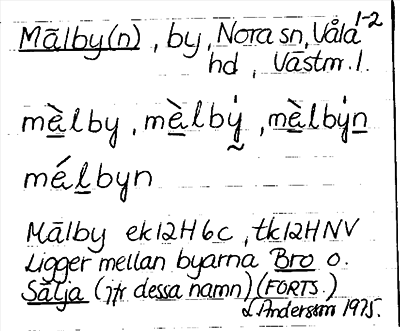 Mālby(n), by, Nora sn, Våla 1-2
hd, Västm. l.
mèlby, mèlbẏ, mèlbẏn
mélbyn
Mālby ek12H6c, tk12HNV
Ligger mellan byarna Bro o.
Sälja (jfr dessa namn) (FORTS.)
L Andersson 1975.